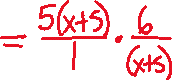 = \frac{5(x+5)}{1} \cdot \frac{6}{(x+5)}